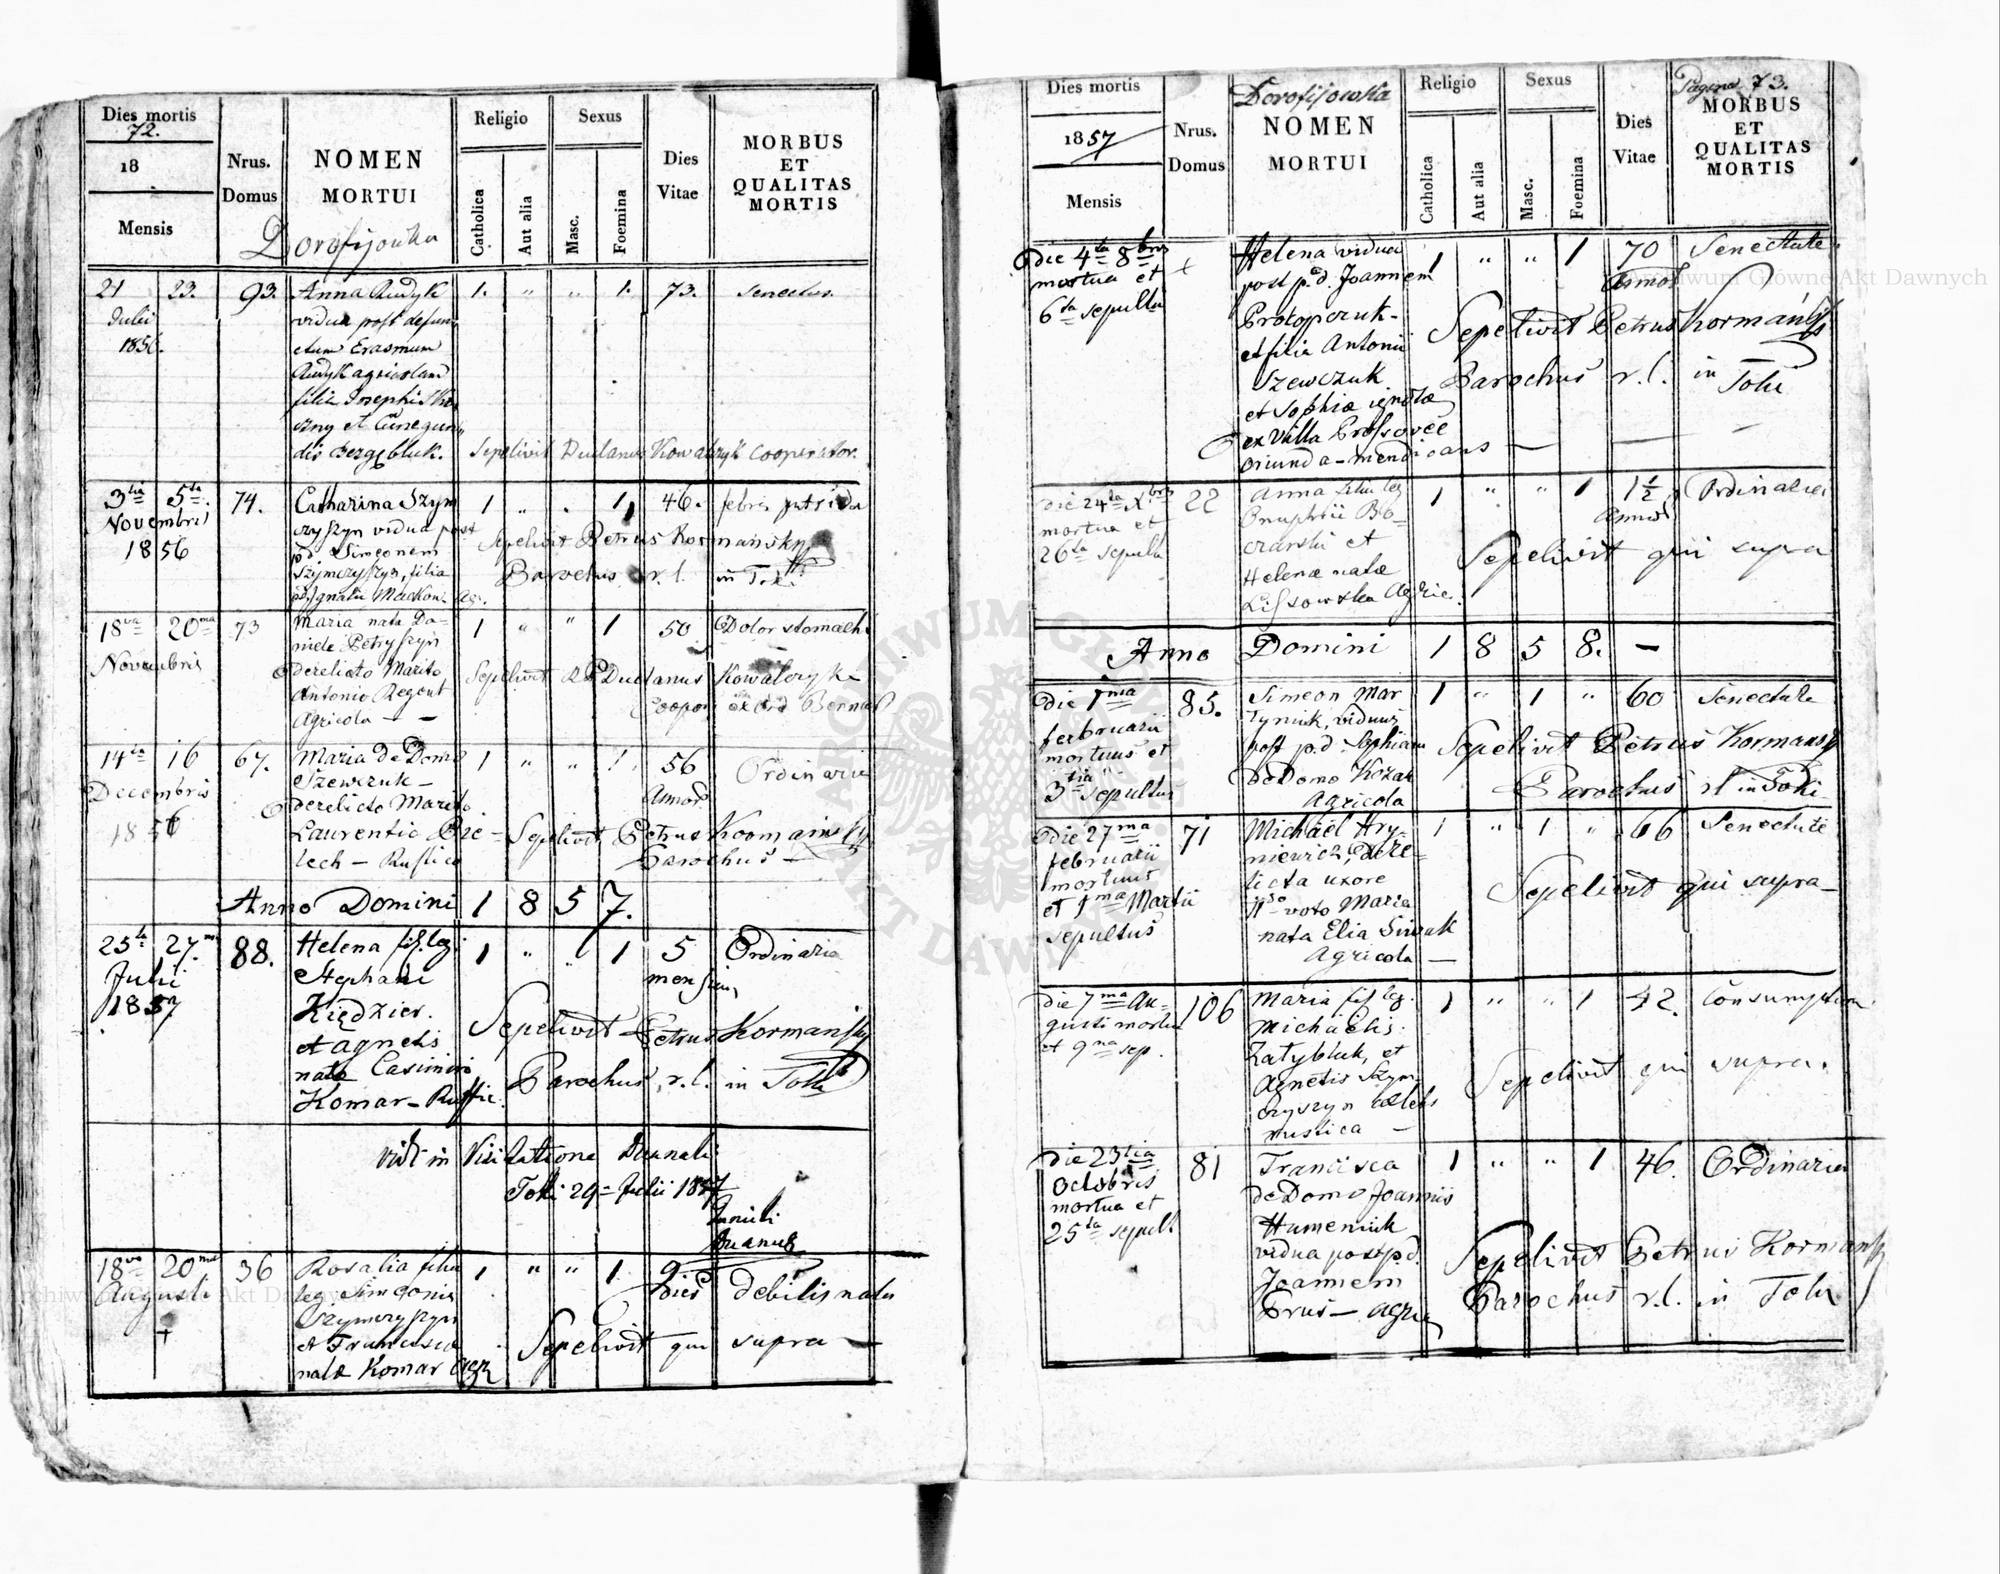 Dies mortis
72.
18
Mensis
Nrus.
Domus
NOMEN
MORTUI
Dorofijowka
Religio
Catholica
Aut alia
Sexus
Masc.
Foemina
Dies
Vitae
MORBUS
ET
QUALITAS
MORTIS
21 23. 93. Anna Rudyk 1. " " 1. 73. Senectus.
Julii vidua post defun
1856. ctum Erasmum
Rudyk agricolam
filia Josephi
et Cunegun
dis Sepelivit Kowalczyk cooperator.
3tia 5ta 74. Catharina Szym 1 " . 1 46. febris putrida
Novembris czyszyn vidua post
1856 pd. Simeonem Sepelivit Petrus Kormansky
Szymczyszyn, filia Parochus r. l. in Toki
pd. Ignatii Agr.
18va 20ma 73 Maria nata Da- 1 " " 1 50 Dolor stomachi
Novembris niele Petryszyn
derelicto Marito Sepelivit Kowalczyk
Antonio Regent Coopor ex Ord Bernard
Agricola - -
14ta 16 67. Maria de Domo 1 " " 1. 56 Ordinaria
Decembris Szewczuk - Annor
1856 derelicto Marito
Laurentio Pie- Sepelivit Petrus Kormansky
lech - Rustica Parochus
Anno Domini 1 8 5 7.
25ta 27ma 88. Helena fil. leg. 1 " " 1 5 Ordinaria
Julii Stephani mensium
1857 Kiędzier.
et Agnetis Sepelivit Petrus Kormansky
nata Casimiro Parochus r. l. in Toki
Komar - Rustic.
Vidi in Visitatione Decanali
Toki 29 Julii 1857
Decanus
18va 20ma 36 Rosalia filia 1 " " 1. 9 debilis nata
Augusti leg. Simeonis Dies
+ Szymczyszyn
et Francisca Sepelivit qui supra -
nata Komar Agr
Dies mortis
1857
Mensis
Nrus.
Domus
Dorofijowka
NOMEN
MORTUI
Religio
Catholica
Aut alia
Sexus
Masc.
Foemina
Dies
Vitae
Pagina 73.
MORBUS
ET
QUALITAS
MORTIS
Die 4ta 8bris + Helena vidua 1 " " 1 70 Senectute
mortua et post p.d. Joannem Annor
6ta sepulta Protopczuk -
et filia Antonii Sepelivit Petrus Kormański
Szewczuk Parochus r. l. in Toki
et Sophiæ ignotæ
ex Villa Prossovce
oriunda - mendicans -
Die 24ta Xbris 22 Anna filia leg 1 " " 1 1 1/2 Ordinaria
mortua et Onuphrii Bo- Annor
26ta sepulta czarski et Sepelivit qui supra
Helenæ natæ
Lissowska Agric.
Anno Domini 1 8 5 8. -
Die 1ma 85. Simeon Mar 1 " 1 " 60 Senectute
februarii tyniuk, viduus
mortuus et post p.d Sophiam Sepelivit Petrus Kormansky
3tia sepultus de Domo Kozak Parochus r l in Toki
Agricola
Die 27ma 71 Michael Hry- 1 " 1 " 66 Senectute
februarii niewicz, dere-
mortuus licta uxore Sepelivit qui supra -
et 1ma Martii voto Maria
sepultus nata Elia Siwak
Agricola -
Die 7ma Au- 106 Maria fil leg. 1 " " 1 42. Consumptione
gusti mortua Michaelis
et 9na sep. Zatybluk, et Sepelivit qui supra.
Agnetis Szym
czyszyn cælebs
rustica -
Die 23tia 81 Francisca 1 " " 1 46. Ordinaria
Octobris de Domo Joannis
mortua et Humeniuk
25ta sepult. vidua post p.d. Sepelivit Petrus Kormansky
Joannem Parochus r. l. in Toki
Prus - Agric
Archiwum Główne Akt Dawnych
ARCHIWUM GŁÓWNE AKT DAWNYCH
Archiwum Główne Akt Dawnych